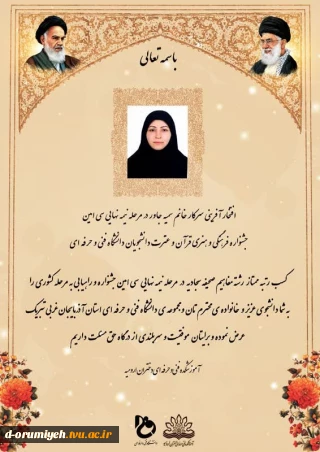 باسمه تعالی
افتخار آفرینی سرکار خانم سمیه جاور در مرحله نیمه نهایی سی امین
جشنواره فرهنگی و هنری قرآن و عترت دانشجویان دانشگاه فنی و حرفه ای
کسب رتبه ممتاز رشته مفاهیم صحیفه سجادیه در مرحله نیمه نهایی سی امین جشنواره و راهیابی به مرحله کشوری را
به شما دانشجوی عزیز و خانواده ی محترم تان و مجموعه ی دانشگاه فنی و حرفه ای استان آذربایجان غربی تبریک
عرض نموده و برایتان موفقیت و سربلندی از درگاه حق مسئلت داریم
آموزشکده فنی و حرفه ای دختران ارومیه
d-orumiyeh.tvu.ac.ir